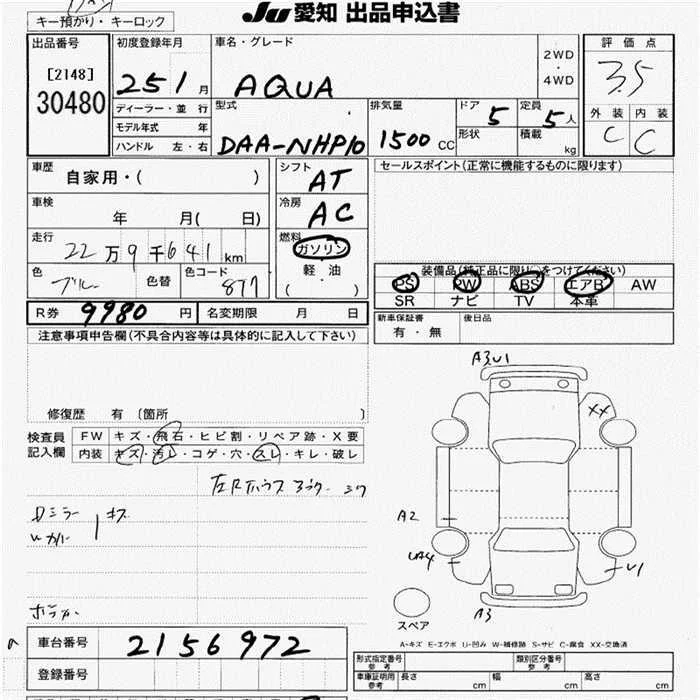 Ju 愛知 出品申込書
キー預かり・キーロック
出品番号
[2148]
30480
初度登録年月
25 1 月
ディーラー・並 行
モデル年式 年
ハンドル 左・右
車名・グレード
AQUA
2WD
・
4WD
評価点
3.5
外装 内装
C C
型式
DAA-NHP10
排気量
1500 CC
ドア 5
形状
定員 5 人
積載 kg
車歴
自家用・( )
車検
年 月( 日)
走行
22万9千641km
色 ブルー 色替
色コード 877
シフト
AT
冷房
AC
燃料
ガソリン
軽・油
( )
セールスポイント(正常に機能するものに限ります)
装備品(純正品に限り○をつけてください)
PS PW ABS エアB AW
SR ナビ TV 本革
R券 9980 円
名変期限 月 日
新車保証書
有・無
後日品
注意事項申告欄(不具合内容等は具体的に記入して下さい)
修復歴 有 〔箇所 〕
検査員
記入欄
FW キズ・飛石・ヒビ割・リペア跡・X要
内装 キズ・汚レ・コゲ・穴・スレ・キレ・破レ
Dミラー
キズ
A3U1
XX
A2
UA4
U1
A3
スペア
A-キズ E-エクボ U-凹み W-補修跡 S-サビ C-腐食 XX-交換済
車台番号 2156972
登録番号
形式指定番号
参考
類別区分番号
参考
車庫証明用
参考
長さ cm
幅 cm
高さ cm